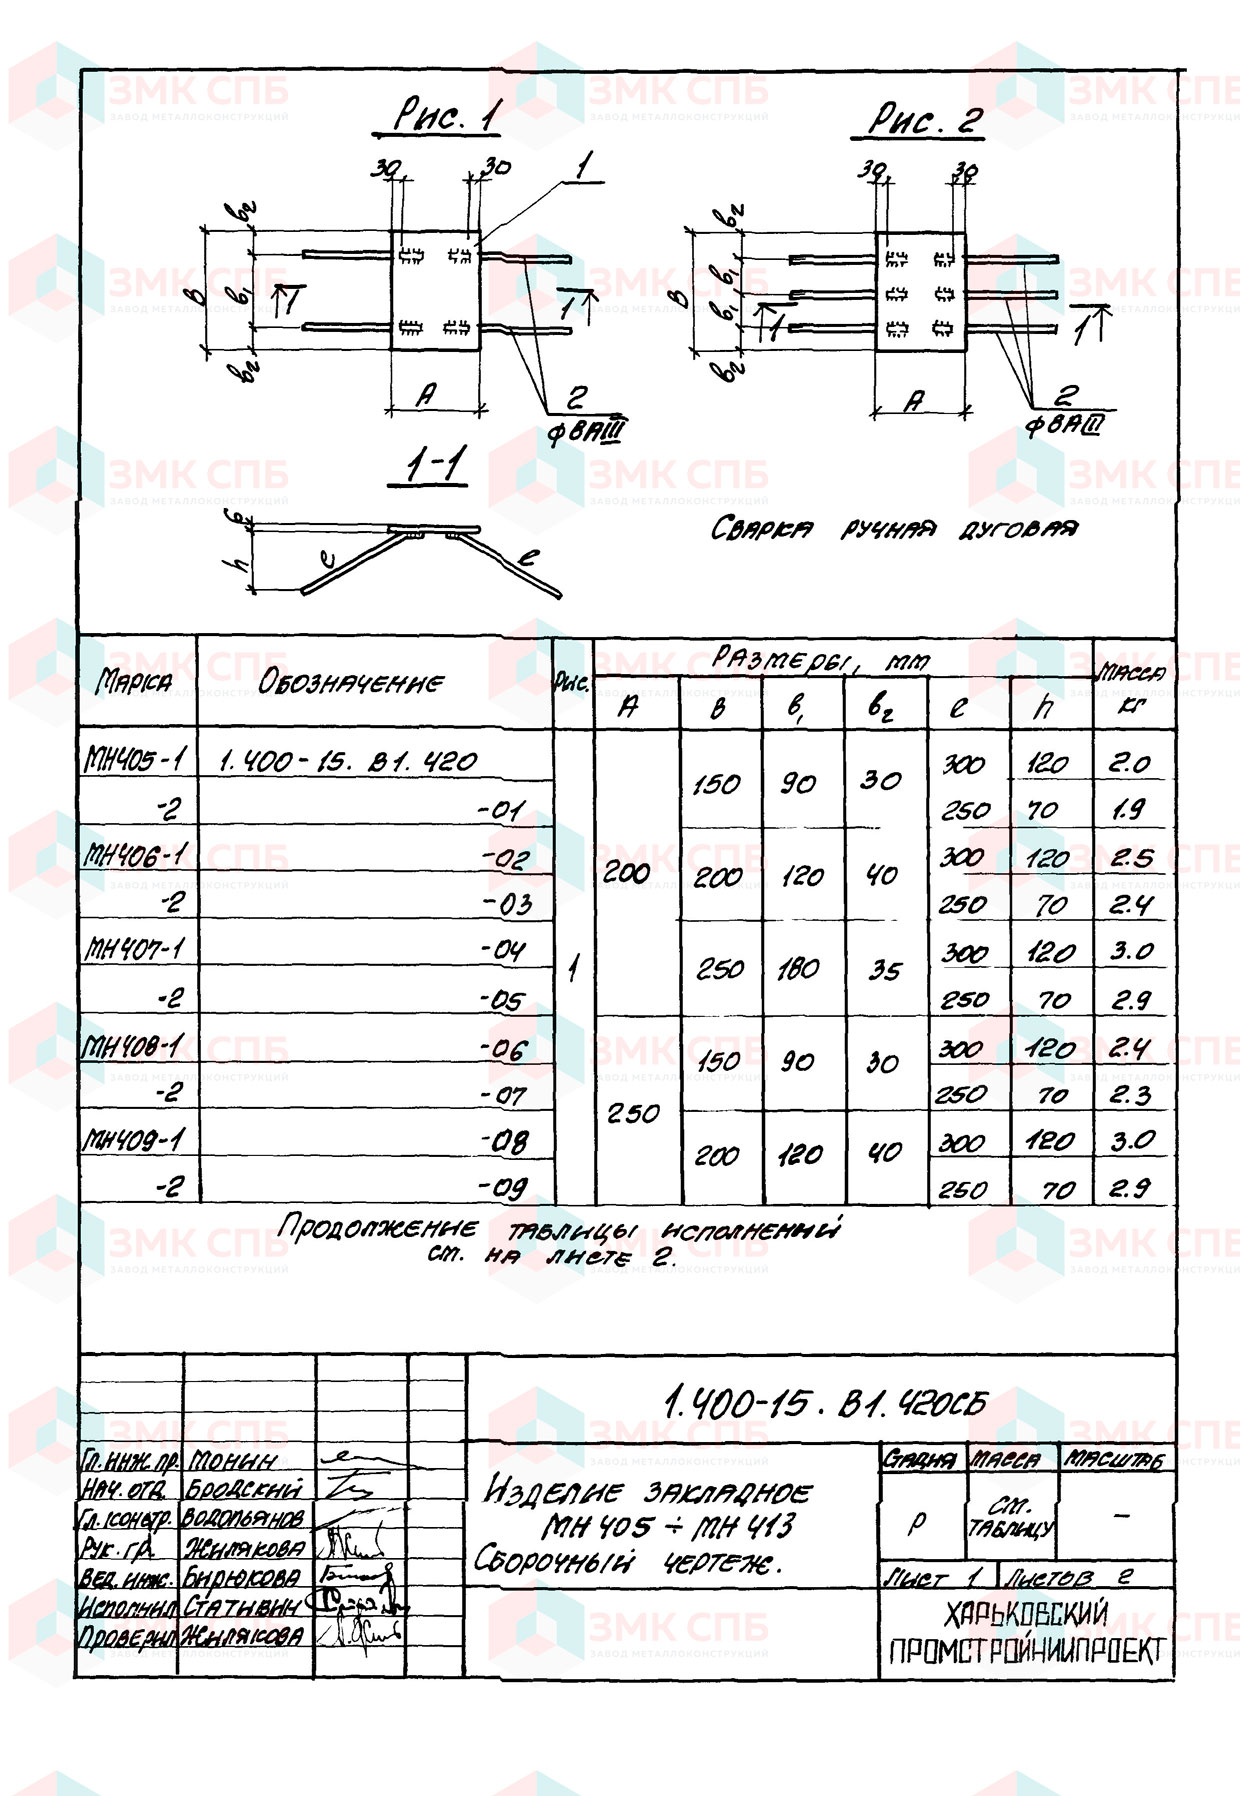 Рис. 1
Рис. 2
30 30 1
30 30
в2 в1 в2 В
в2 в1 в1 в2 В
1 1
1 1
А
А
2
ф8АIII
2
ф8АIII
1-1
6
h
ℓ ℓ
Сварка ручная дуговая
Марка Обозначение Рис. Размеры, мм Масса кг
А В в1 в2 ℓ h
МН405-1 1.400-15. В1. 420 1 200 150 90 30 300 120 2.0
-2 -01 250 70 1.9
МН406-1 -02 200 120 40 300 120 2.5
-2 -03 250 70 2.4
МН407-1 -04 250 180 35 300 120 3.0
-2 -05 250 70 2.9
МН408-1 -06 250 150 90 30 300 120 2.4
-2 -07 250 70 2.3
МН409-1 -08 200 120 40 300 120 3.0
-2 -09 250 70 2.9
Продолжение таблицы исполнений
см. на листе 2.
1.400-15. В1. 420СБ
Гл. инж. пр. Монин
Нач. отд. Бродский
Гл. констр. Водопьянов
Рук. гр. Жилякова
Вед. инж. Бирюкова
Исполнил Статывич
Проверил Жилякова
Изделие закладное
МН 405 ÷ МН 413
Сборочный чертеж.
Стадия Масса Масштаб
Р см. таблицу –
Лист 1 Листов 2
ХАРЬКОВСКИЙ
ПРОМСТРОЙНИИПРОЕКТ
ЗМК СПБ
ЗАВОД МЕТАЛЛОКОНСТРУКЦИЙ